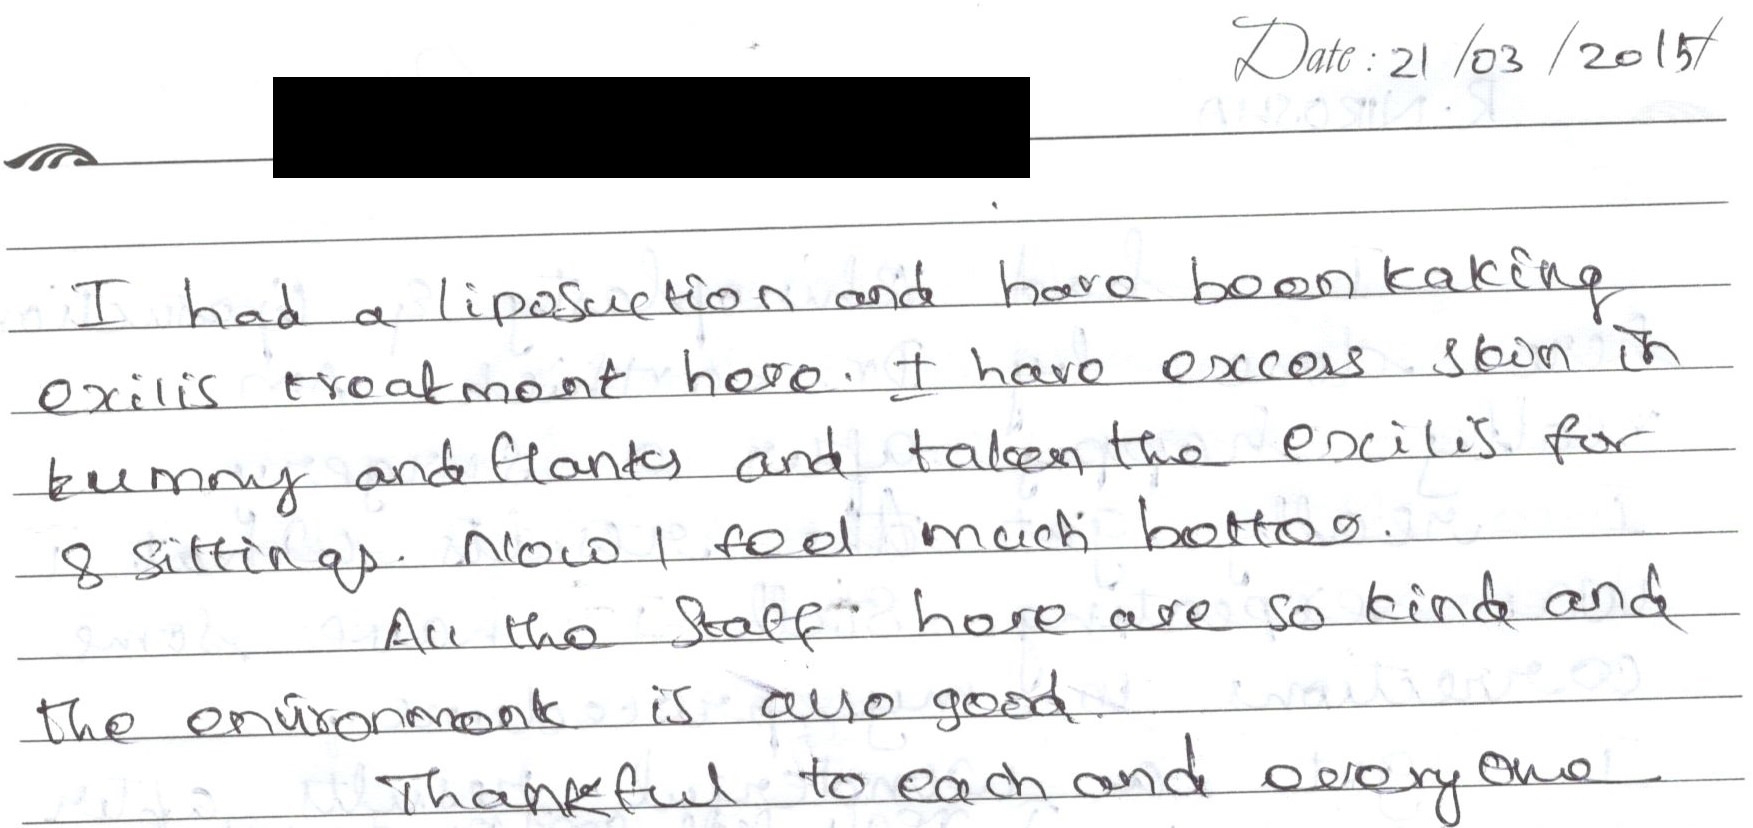 Date : 21 /03 /2015
I had a liposuction and have been taking
exilis treatment here. I have excess skin in
tummy and flanks and taken the exilis for
8 sittings. Now I feel much better.
All the staff here are so kind and
the environment is also good.
Thankful to each and every one